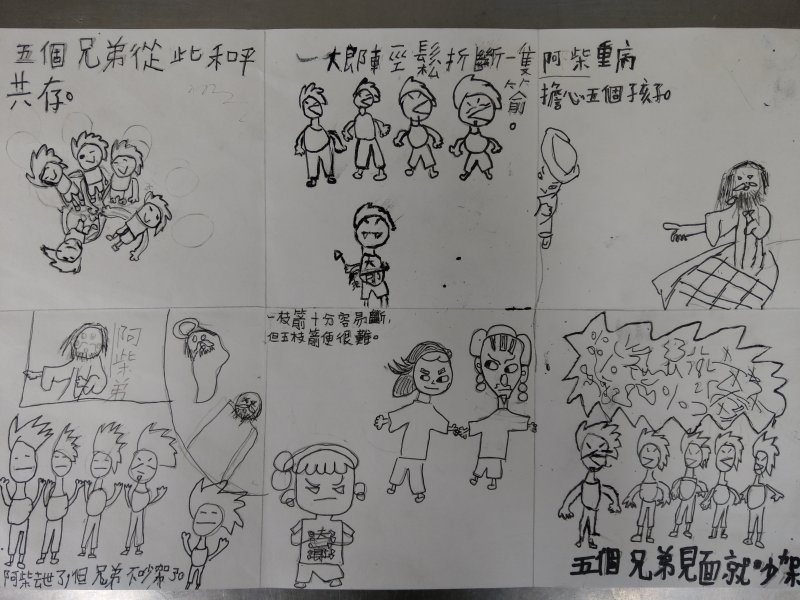 五個兄弟從此和平
共存。
一大郎輕鬆折斷一隻
箭。
阿柴重病
擔心五個孩子。
阿柴弟
阿柴去世了,但兄弟不吵架了
一枝箭十分容易斷,
但五枝箭便很難。
五個兄弟見面就吵架